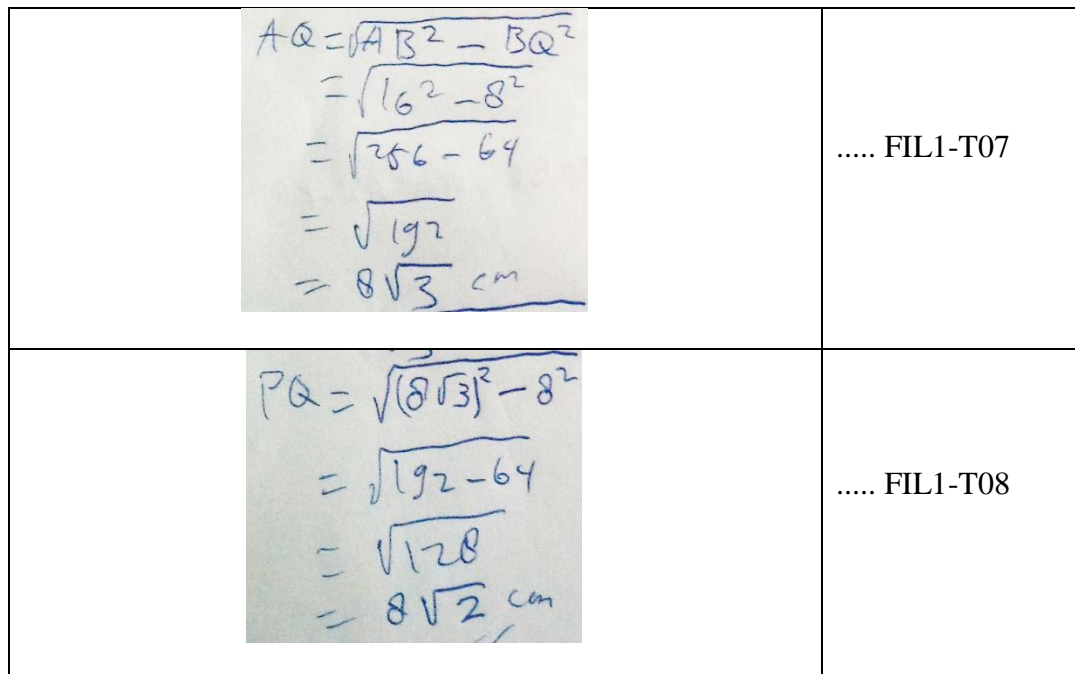 AQ = √AB² − BQ²
= √16² − 8²
= √256 − 64
= √192
= 8√3 cm
..... FIL1-T07
PQ = √(8√3)² − 8²
= √192 − 64
= √128
= 8√2 cm
..... FIL1-T08